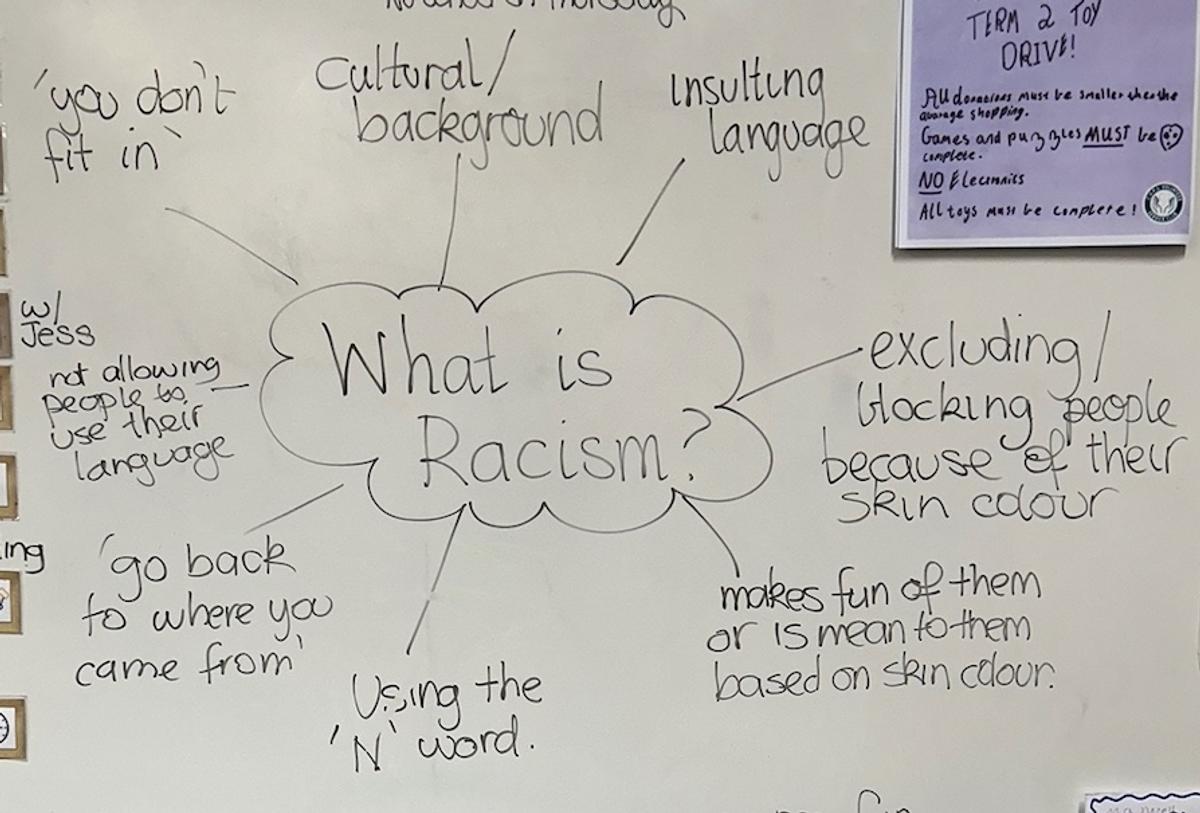 'you don't
fit in'
Cultural/
background
Insulting
language
TERM 2 TOY
DRIVE!
All donations must be smaller than the
average shopping.
Games and puzzles MUST be
complete.
NO Electronics
All toys must be complete!
w/
Jess
not allowing
people to
use their
language
What is
Racism?
excluding/
blocking people
because of their
skin colour
ing
'go back
to where you
came from'
Using the
'N' word.
makes fun of them
or is mean to them
based on skin colour.